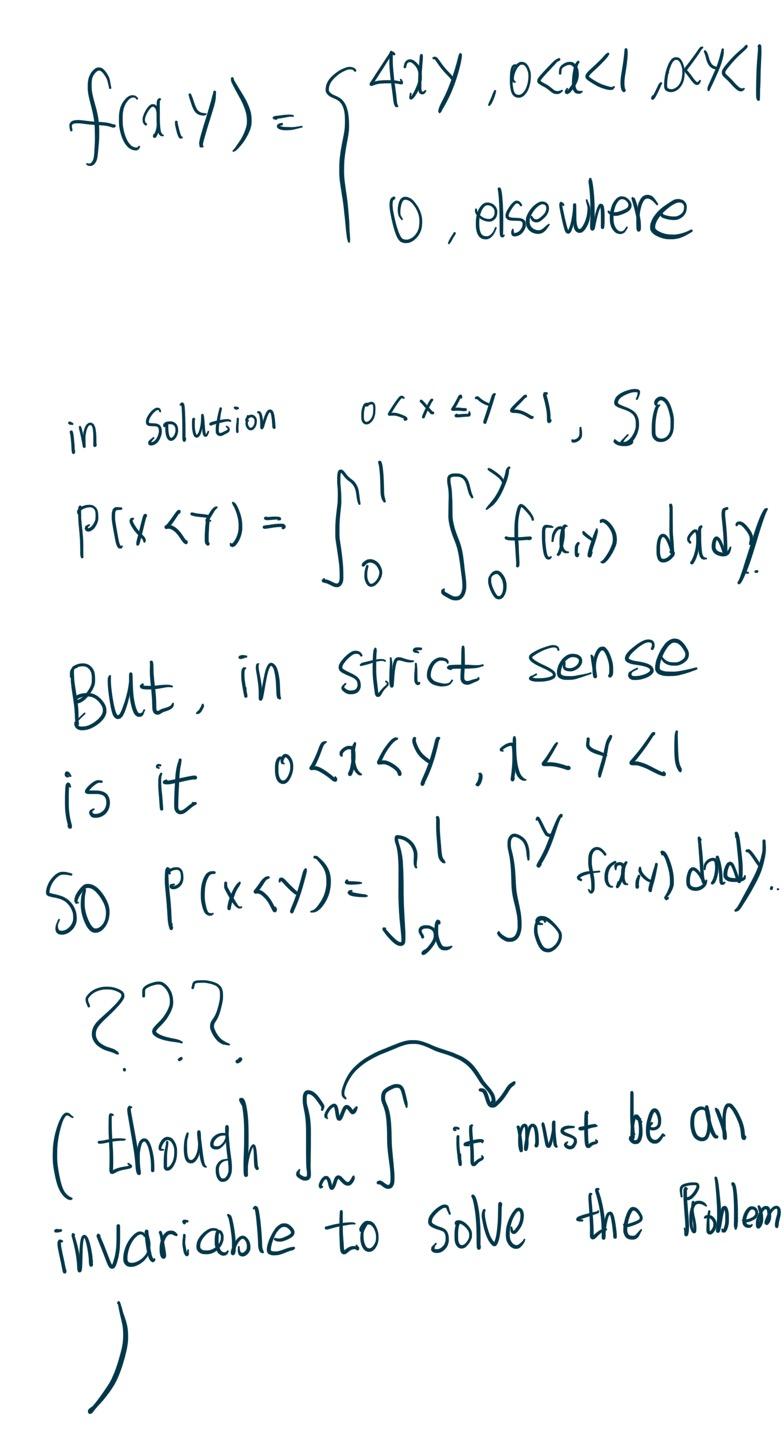 f(x,y) = { 4xy , 0<x<1 , 0<y<1
0 , elsewhere
in Solution 0<x≤y<1, SO
P(X<Y) = ∫₀¹ ∫₀ʸ f(x,y) dxdy.
But, in strict sense
is it 0<x<y , x<y<1
So P(X<Y) = ∫ₓ¹ ∫₀ʸ f(x,y) dxdy..
???
( though ∫ ∫ it must be an
invariable to solve the Problem
)